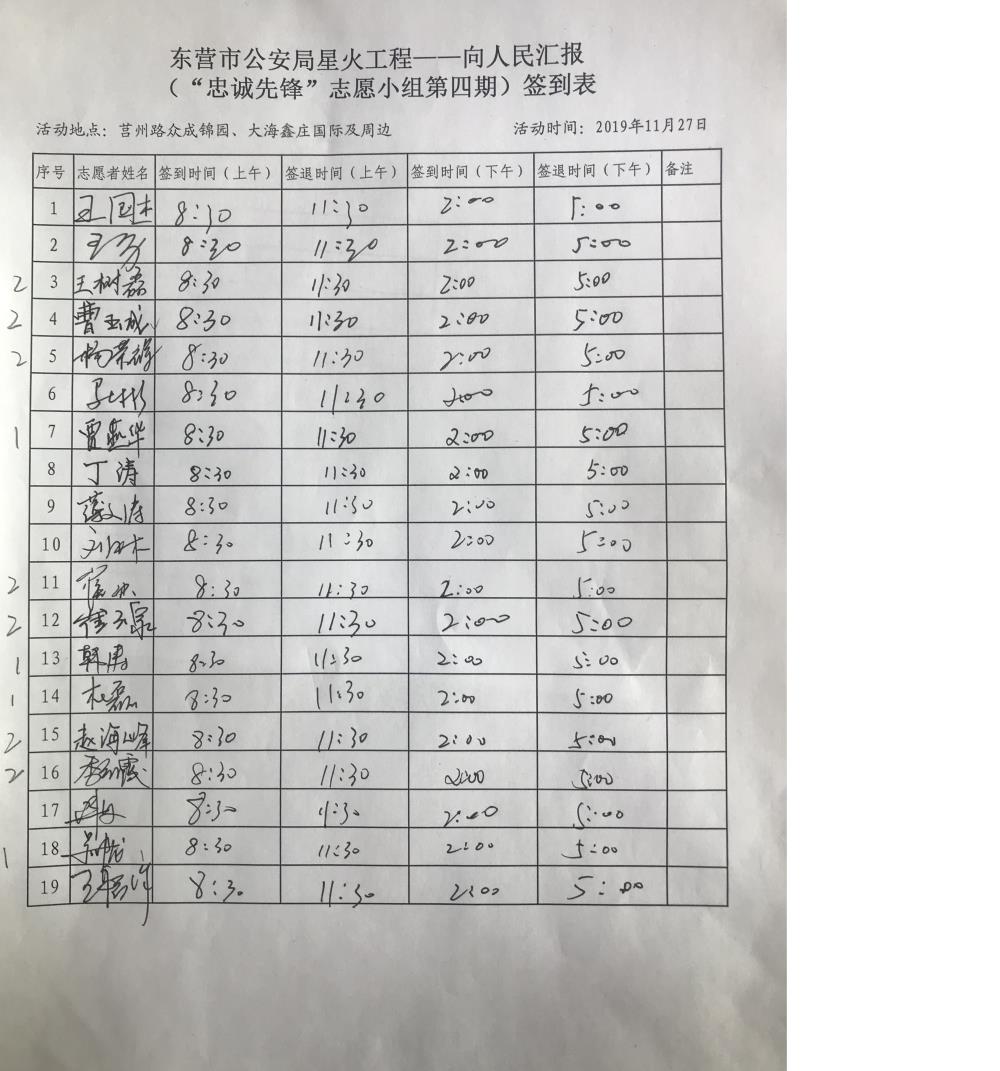 东营市公安局星火工程——向人民汇报
（“忠诚先锋”志愿小组第四期）签到表
活动地点：莒州路众成锦园、大海鑫庄国际及周边 活动时间：2019年11月27日
序号 志愿者姓名 签到时间（上午） 签退时间（上午） 签到时间（下午） 签退时间（下午） 备注
1 王国杰 8:30 11:30 2:00 5:00
2 8:30 11:30 2:00 5:00
2 3 王树磊 8:30 11:30 2:00 5:00
2 4 曹玉成 8:30 11:30 2:00 5:00
2 5 8:30 11:30 2:00 5:00
6 马彬彬 8:30 11:30 2:00 5:00
1 7 贾燕华 8:30 11:30 2:00 5:00
8 丁涛 8:30 11:30 2:00 5:00
9 8:30 11:30 2:00 5:00
10 8:30 11:30 2:00 5:00
2 11 8:30 11:30 2:00 5:00
2 12 8:30 11:30 2:00 5:00
1 13 韩涛 8:30 11:30 2:00 5:00
1 14 杜磊 8:30 11:30 2:00 5:00
2 15 赵海峰 8:30 11:30 2:00 5:00
2 16 8:30 11:30 2:00 5:00
17 8:30 11:30 2:00 5:00
1 18 8:30 11:30 2:00 5:00
19 8:30 11:30 2:00 5:00